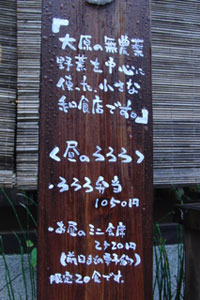 「大原の無農薬
野菜を中心に
使った、小さな
和食店です。」
<昼のろろろ>
・ろろろ弁当
1050円
・お昼のミニ会席
2520円
(前日までの要予約)
限定20食です。